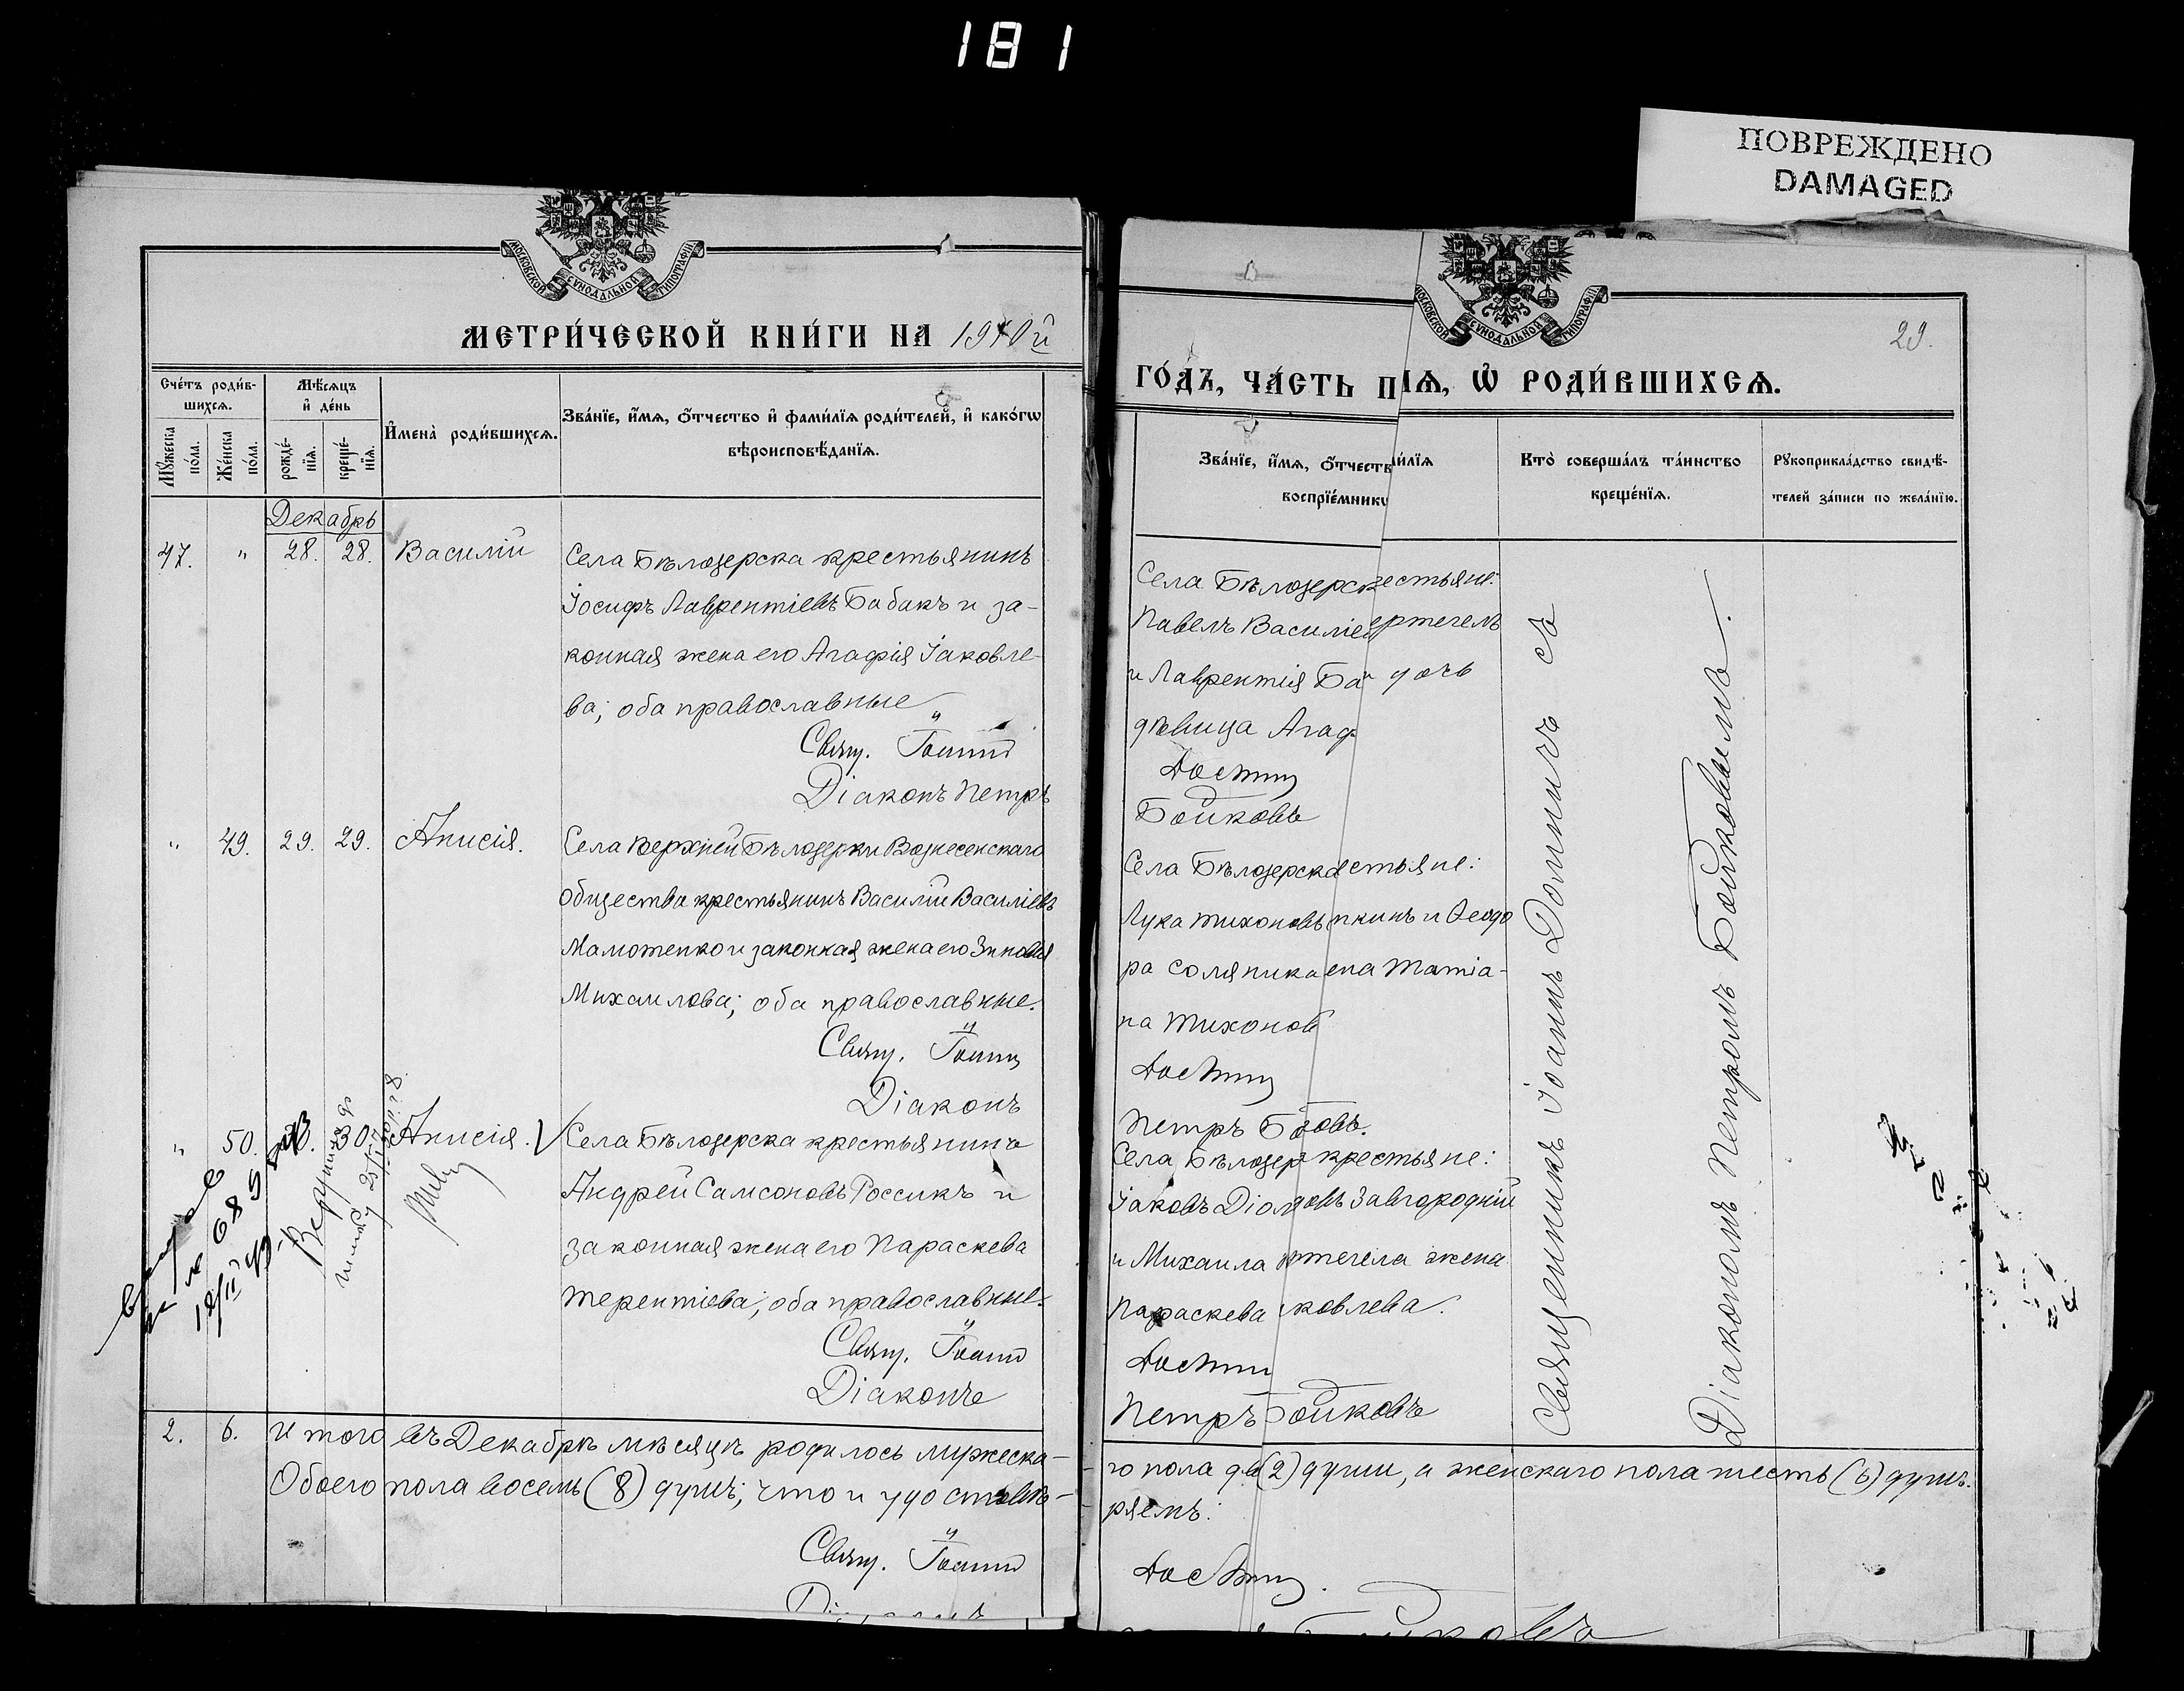 181
ПОВРЕЖДЕНО
DAMAGED
МОСКОВСКОЙ СУНОДАЛЬНОЙ ТИПОГРАФІИ
МЕТРИ́ЧЕСКОЙ КНИ́ГИ НА 1910й
Сче́тъ роди́в-
шихсѧ.
Мѣсѧцъ
и҆ де́нь
Мꙋжеска по́ла.
Же́нска по́ла.
рожде́-нїѧ.
креще́-нїѧ.
И҆мена̀ роди́вшихсѧ.
Зва́нїе, и҆́мѧ, ѻ҆́тчество и҆ фами́лїѧ роди́телей, и҆ како́гѡ
вѣроисповѣ́данїѧ.
Декабрь
47. " 28. 28. Василій
Села Бѣлозерска крестьянинъ
Іосифъ Лаврентіевъ Бабакъ и за-
конная жена его Агафія Іаковле-
ва; оба православные
Свящ. Іоаннъ
Діаконъ Петръ
" 49. 29. 29. Анисія.
Села Верхней Бѣлозерки Вознесенскаго
общества крестьянинъ Василій Василіевъ
Мамотенко и законная жена его Зиновія
Михаилова; оба православные.
Свящ. Іоаннъ
Діаконъ
" 50. 30. Анисія.
Села Бѣлозерска крестьянинъ
Андрей Самсоновъ Россикъ и
законная жена его Параскева
Терентіева; оба православные.
Свящ. Іоаннъ
Діаконъ
2. 6. Итого въ Декабрѣ мѣсяцѣ родилось мужеска-
Обоего пола восемь (8) душъ; что и удостовѣ-
Свящ. Іоаннъ
МОСКОВСКОЙ СУНОДАЛЬНОЙ ТИПОГРАФІИ
29.
ГО́ДЪ, ЧА́СТЬ П ІѦ, Ѡ҆ РОДИ́ВШИХСѦ.
Зва́нїе, и҆́мѧ, ѻ҆́тчеств и́лїѧ
воспрїе́мнико
Кто̀ соверша́лъ та́инство
креще́нїѧ.
Рꙋкоприкла́дство свидѣ́-
телей за́писи по жела́нїю.
Села Бѣлозерск естьяне:
Павелъ Василіе ертегелъ
и Лаврентія Ба дочь
дѣвица Агаф
Бойковъ
Села Бѣлозерска естьяне:
Лука Тихоновъ пкинъ и Ѳеодо
ра Соляника ена Татіа-
на Тихонов
Петръ Б овъ.
Села Бѣлозер крестьяне:
Іаковъ Діо довъ Завгородній
и Михаила ртегела жена
Параскева ковлева.
Петръ Бойковъ
Священникъ Іоаннъ Доминич съ
Діакономъ Петромъ Бойковымъ.
го пола двѣ (2) души, а женскаго пола шесть (6) душъ.
ряемъ:
Бойковъ